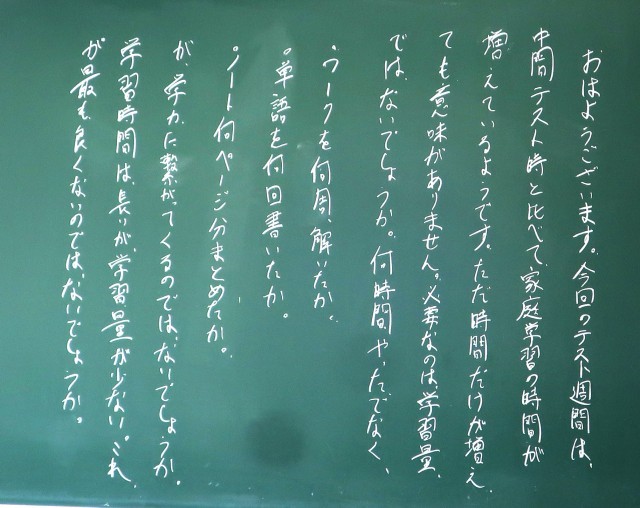 おはようございます。今回のテスト週間は、
中間テスト時と比べて、家庭学習の時間が
増えているようです。ただ時間だけが増え
ても意味がありません。必要なのは、学習量
では、ないでしょうか。何時間やったでなく、
・ワークを何周、解いたか。
・単語を何回書いたか。
・ノート何ページ分まとめたか。
が、学力に繋がてくるのでは、ないでしょうか。
学習時間は、長いが、学習量が少ない。これ
が最も良くないのでは、ないでしょうか。